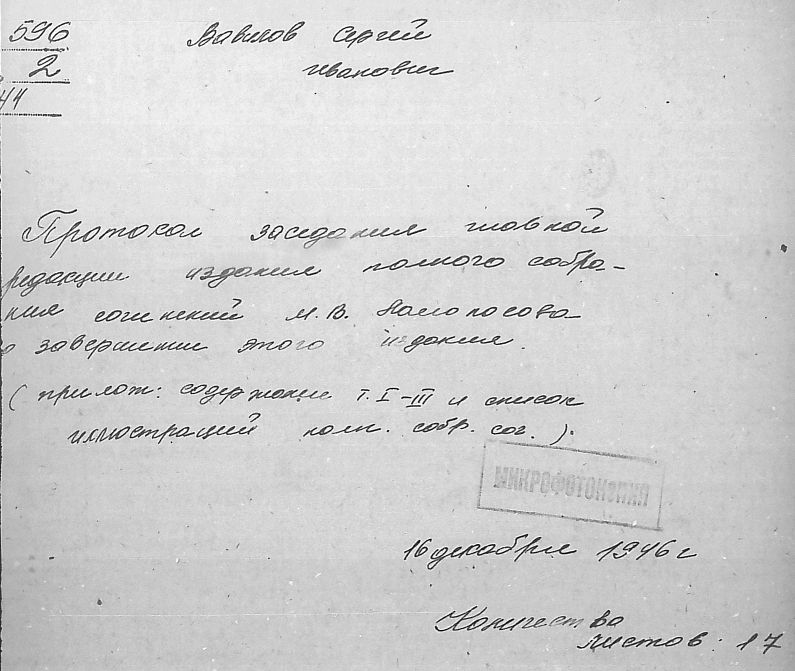 596
2
44
Вавилов Сергей
Иванович
Протокол заседания главной
редакции издания полного собра-
ния сочинений М.В. Ломоносова
о завершении этого издания.
(прилож: содержание т. I-III и список
иллюстраций полн. собр. соч.).
МИКРОФОТОКОПИЯ
16 декабря 1946 г
Количество
листов: 17